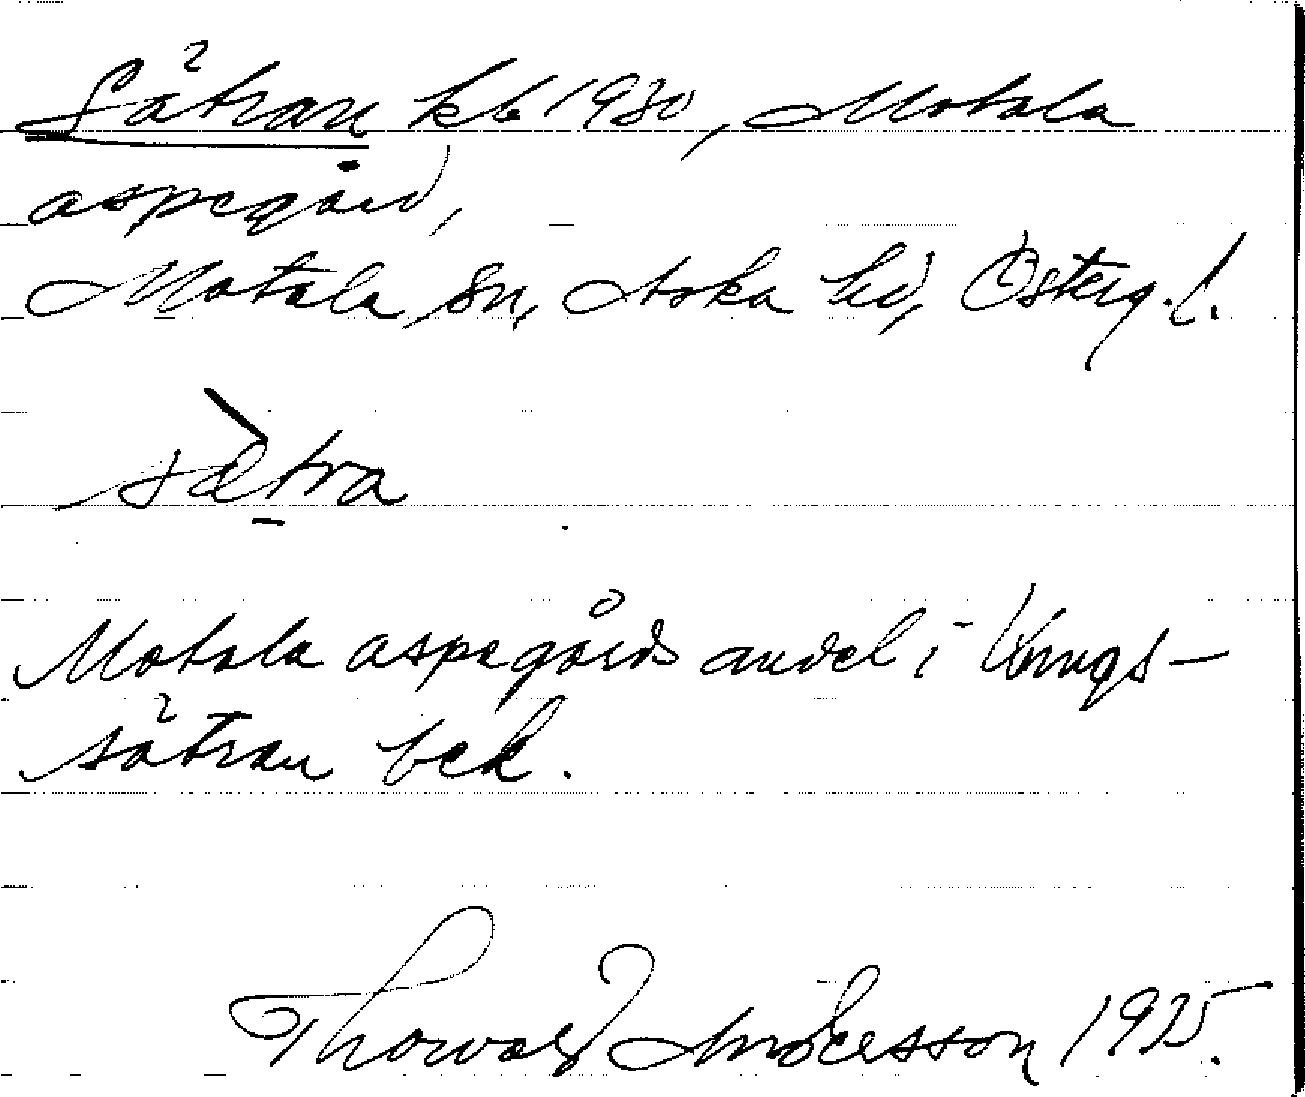 Sätran kb 1930, Motala
aspegård,
Motala sn, Aska hd, Österg. l.
sætra
Motala aspegårds andel i Kungs-
sätran bek.
Thorvald Andersson 1925.